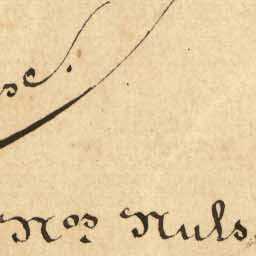 se.
Nos Nuls